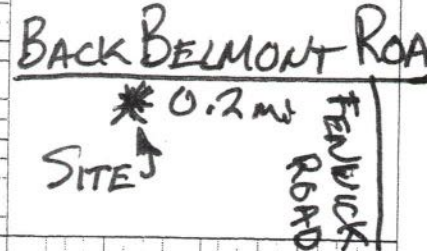 BACK BELMONT ROA
0.2 mi
SITE
FENWICK
ROAD